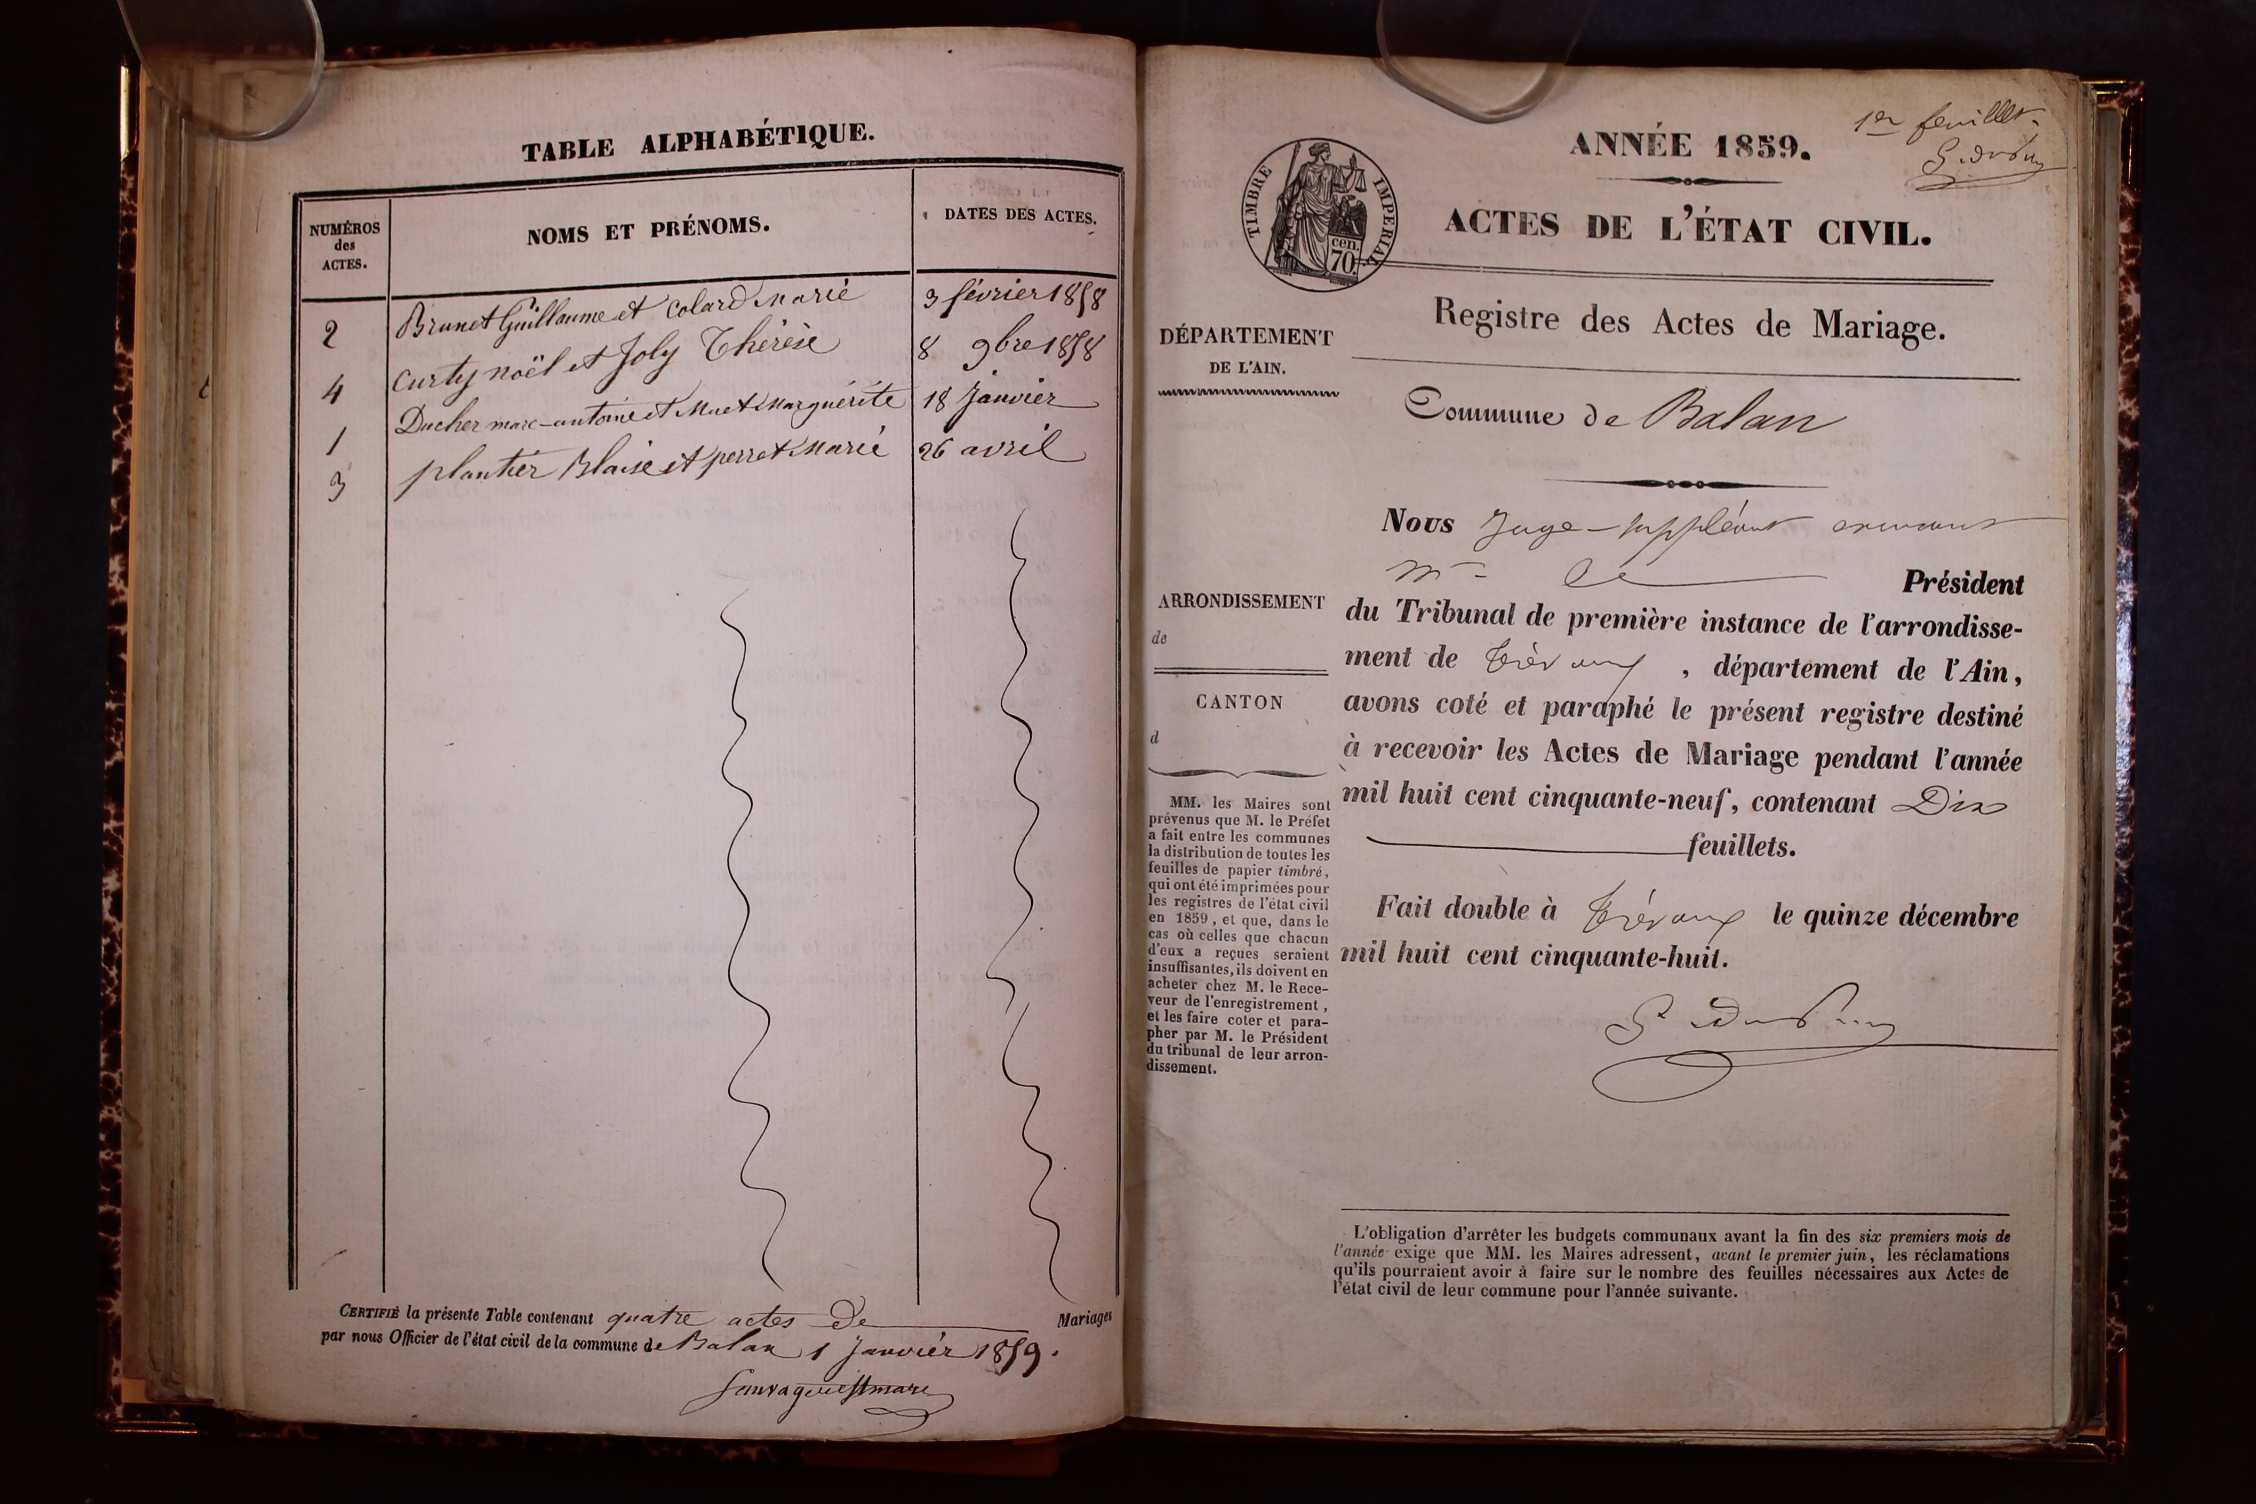 TABLE ALPHABÉTIQUE.
NUMÉROS des ACTES.
NOMS ET PRÉNOMS.
DATES DES ACTES.
2 Brunet Guillaume et Colard Marie 3 février 1858
4 Curty noël et Joly Thérèse 8 9bre 1858
1 Ducher marc-antoine et Muet Marguérite 18 Janvier
3 plantier Blaise et perret Marie 26 avril
CERTIFIÉ la présente Table contenant quatre actes De Mariages
par nous Officier de l'état civil de la commune de Balan 1 Janvier 1859.
1er feuillet.
ANNÉE 1859.
TIMBRE IMPERIAL
cen.
70.
ACTES DE L'ÉTAT CIVIL.
Registre des Actes de Mariage.
DÉPARTEMENT
DE L'AIN.
Commune de Balan
Nous Juge-suppléant
Mr le Président
ARRONDISSEMENT
de
du Tribunal de première instance de l'arrondisse-
ment de Trévoux, département de l'Ain,
CANTON
d
avons coté et paraphé le présent registre destiné
à recevoir les Actes de Mariage pendant l'année
mil huit cent cinquante-neuf, contenant Dix
feuillets.
MM. les Maires sont
prévenus que M. le Préfet
a fait entre les communes
la distribution de toutes les
feuilles de papier timbré,
qui ont été imprimées pour
les registres de l'état civil
en 1859, et que, dans le
cas où celles que chacun
d'eux a reçues seraient
insuffisantes, ils doivent en
acheter chez M. le Rece-
veur de l'enregistrement,
et les faire coter et para-
pher par M. le Président
du tribunal de leur arron-
dissement.
Fait double à Trévoux le quinze décembre
mil huit cent cinquante-huit.
L'obligation d'arrêter les budgets communaux avant la fin des six premiers mois de
l'année exige que MM. les Maires adressent, avant le premier juin, les réclamations
qu'ils pourraient avoir à faire sur le nombre des feuilles nécessaires aux Actes de
l'état civil de leur commune pour l'année suivante.